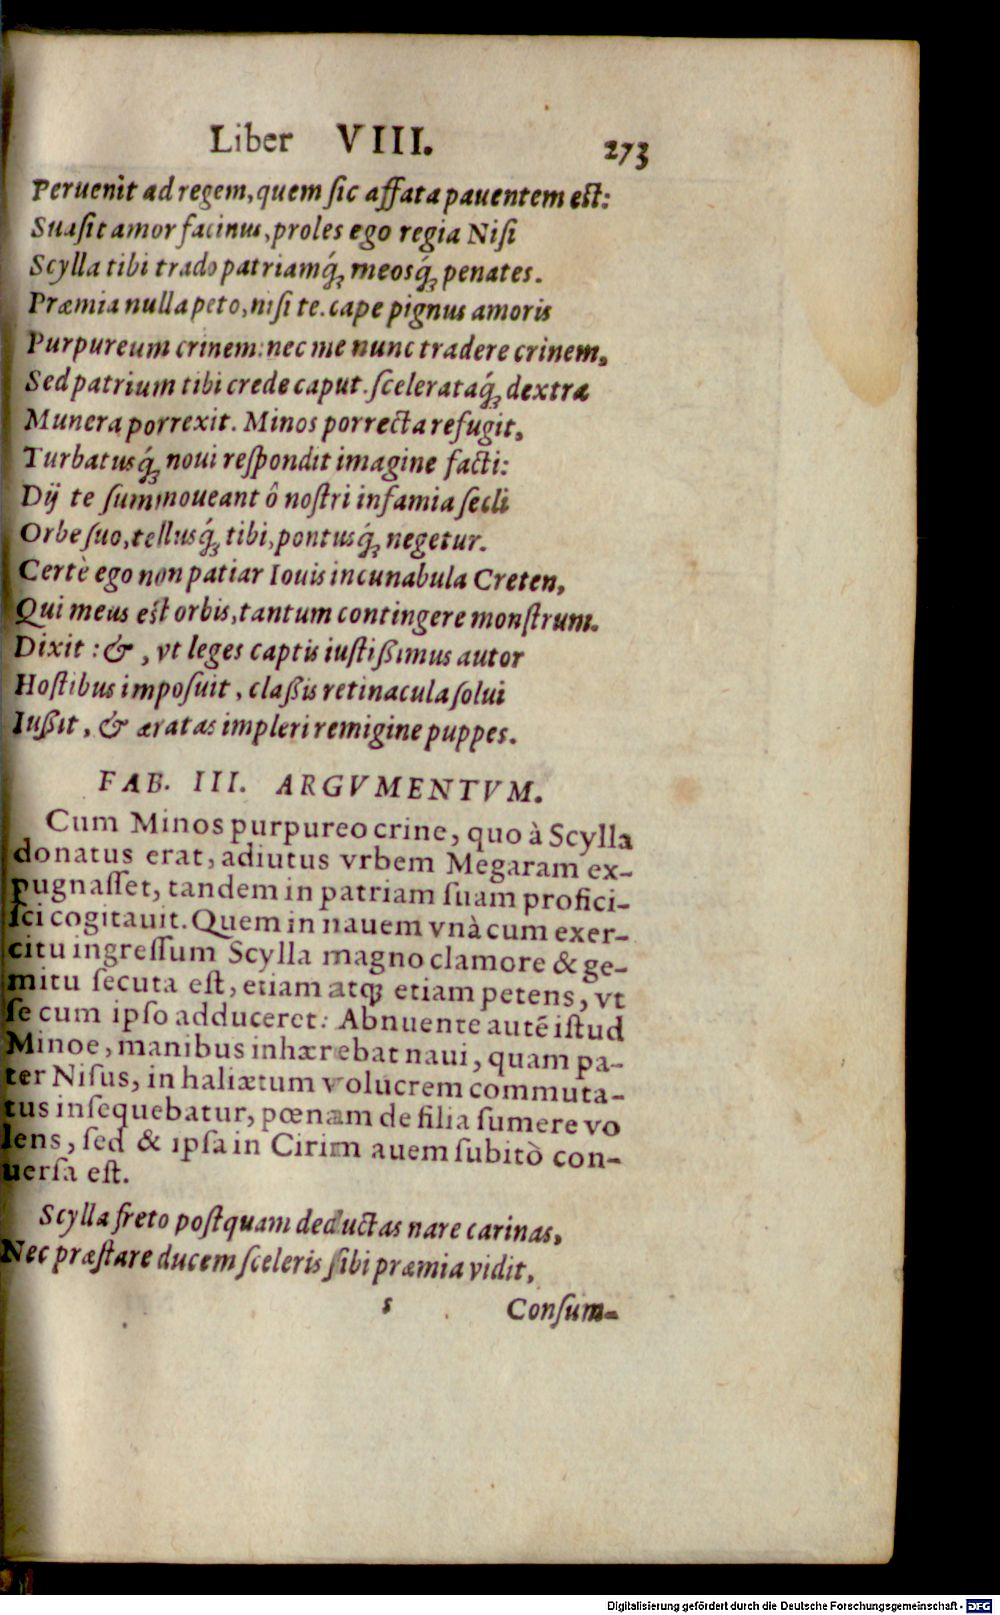 Liber VIII. 273
Peruenit ad regem, quem ſic affata pauentem eſt:
Suaſit amor facinus, proles ego regia Niſi
Scylla tibi trado patriamq́ꝫ meosq́ꝫ penates.
Præmia nulla peto, niſi te. cape pignus amoris
Purpureum crinem: nec me nunc tradere crinem,
Sed patrium tibi crede caput. ſcelerataq́ꝫ dextra
Munera porrexit. Minos porrecta refugit,
Turbatusq́ꝫ noui reſpondit imagine facti:
Dij te ſummoueant ô noſtri infamia ſecli
Orbe ſuo, tellusq́ꝫ tibi, pontusq́ꝫ negetur.
Certè ego non patiar Iouis incunabula Creten,
Qui meus eſt orbis, tantum contingere monſtrum.
Dixit: &, vt leges captis iuſtißimus autor
Hoſtibus impoſuit, claßis retinacula ſolui
Iußit, & æratas impleri remigine puppes.
FAB. III. ARGVMENTVM.
Cum Minos purpureo crine, quo à Scylla
donatus erat, adiutus vrbem Megaram ex-
pugnaſſet, tandem in patriam ſuam profici-
ſci cogitauit. Quem in nauem vnà cum exer-
citu ingreſſum Scylla magno clamore & ge-
mitu ſecuta eſt, etiam atqꝫ etiam petens, vt
ſe cum ipſo adduceret: Abnuente autē iſtud
Minoe, manibus inhærebat naui, quam pa-
ter Niſus, in haliætum volucrem commuta-
tus inſequebatur, pœnam de filia ſumere vo
lens, ſed & ipſa in Cirim auem ſubitò con-
uerſa eſt.
Scylla freto poſtquam deductas nare carinas,
Nec præſtare ducem ſceleris ſibi præmia vidit,
s Conſum-
Digitalisierung gefördert durch die Deutsche Forschungsgemeinschaft - DFG